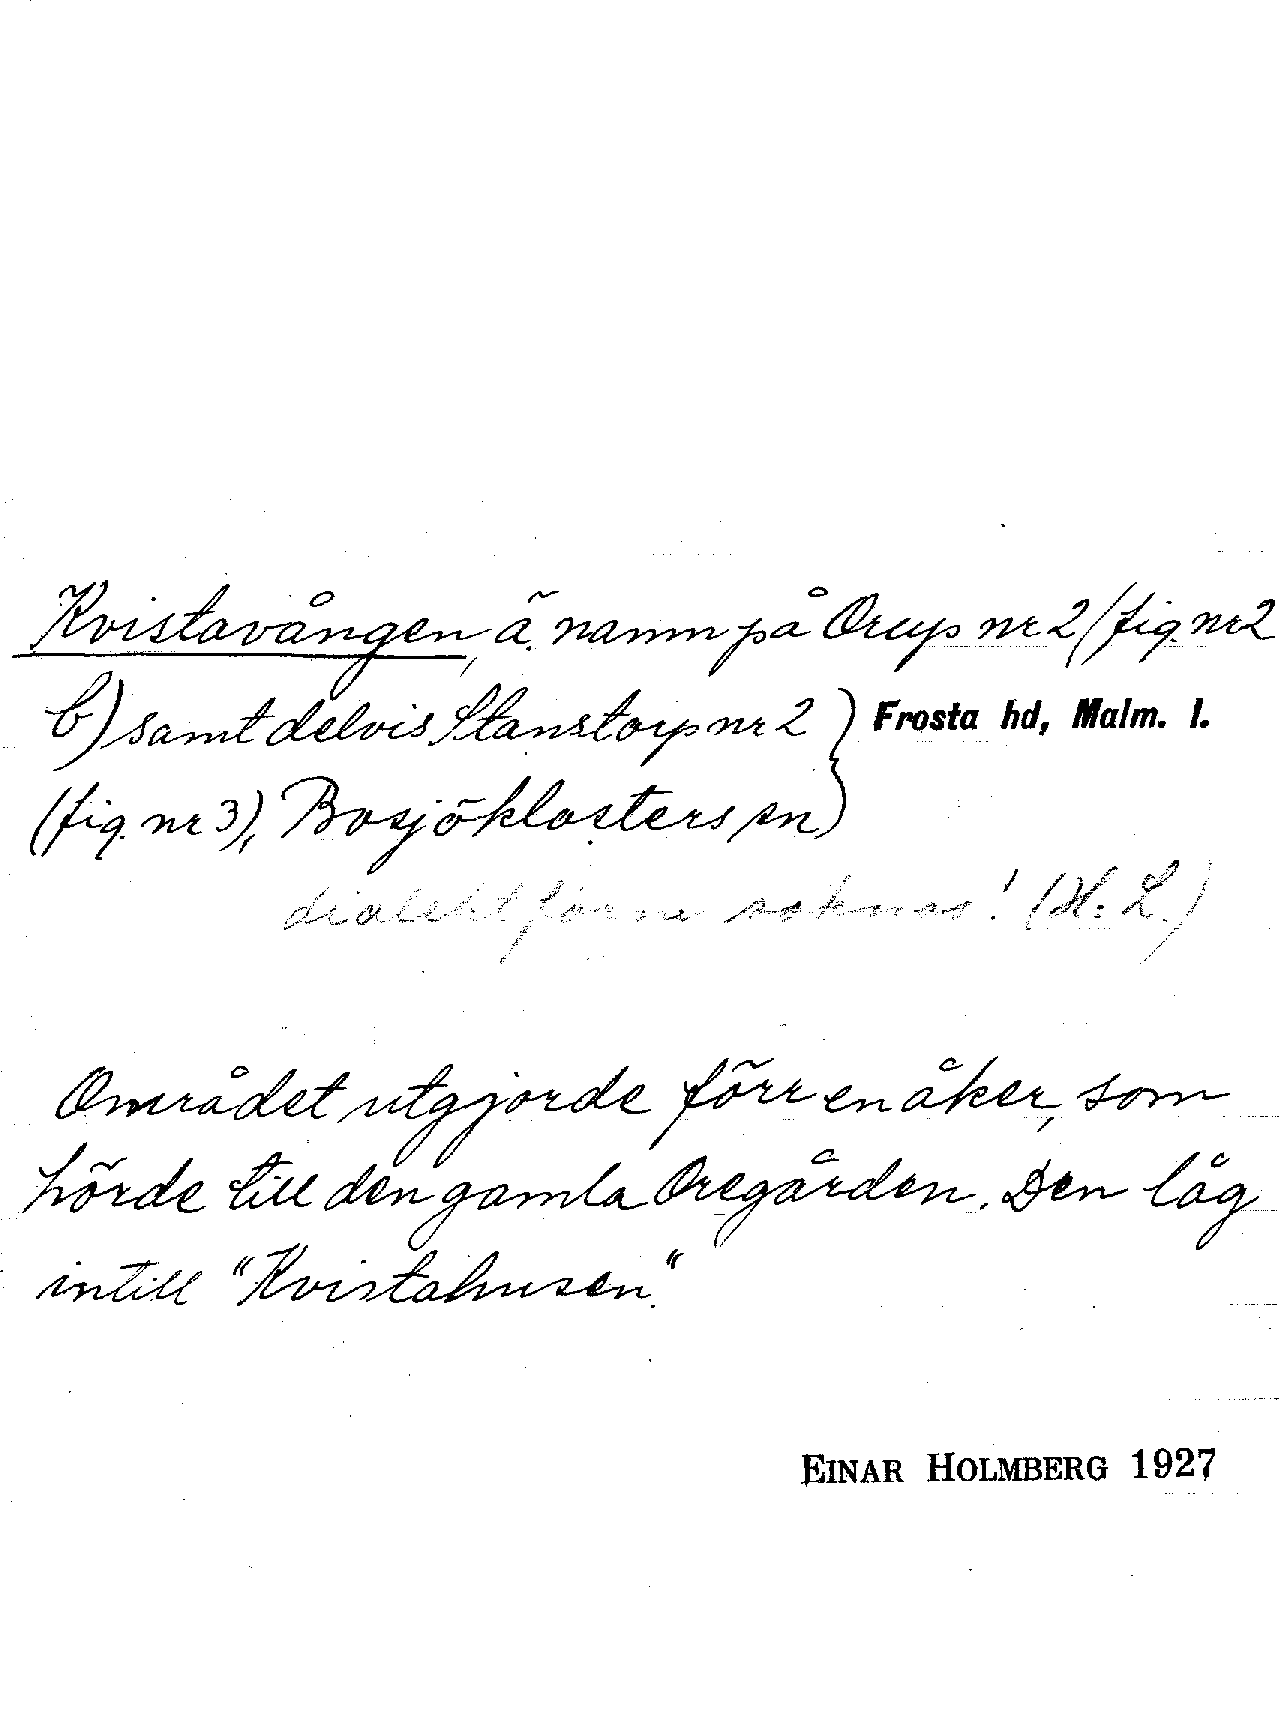 Kvistavången, ä. namn på Orup nr 2 (fig. nr 2
b) samt delvis Stanstorp nr 2 } Frosta hd, Malm. l.
(fig. nr 3), Bosjöklosters sn
dialektform saknas! (H. L.)
Området utgjorde förr en åker, som
hörde till den gamla Oregården. Den låg
intill "Kvistahusen."
EINAR HOLMBERG 1927